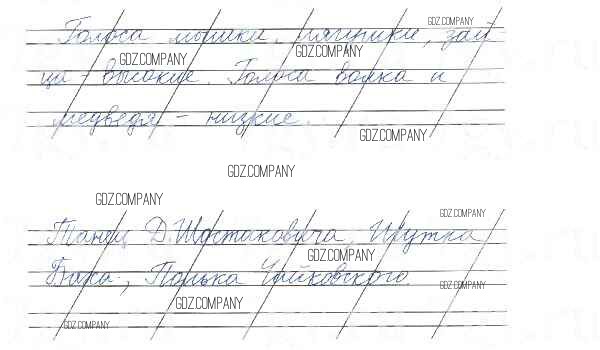 GDZ.COMPANY
Голоса мышки, лягушки, зай
GDZ.COMPANY GDZ.COMPANY
ца – высокие. Голоса волка и
медведя – низкие.
GDZ.COMPANY
GDZ.COMPANY
GDZ.COMPANY
GDZ.COMPANY
Танец Д. Шостаковича, Шутка
GDZ.COMPANY
Баха, Полька Чайковского.
GDZ.COMPANY
GDZ.COMPANY
GDZ.COMPANY